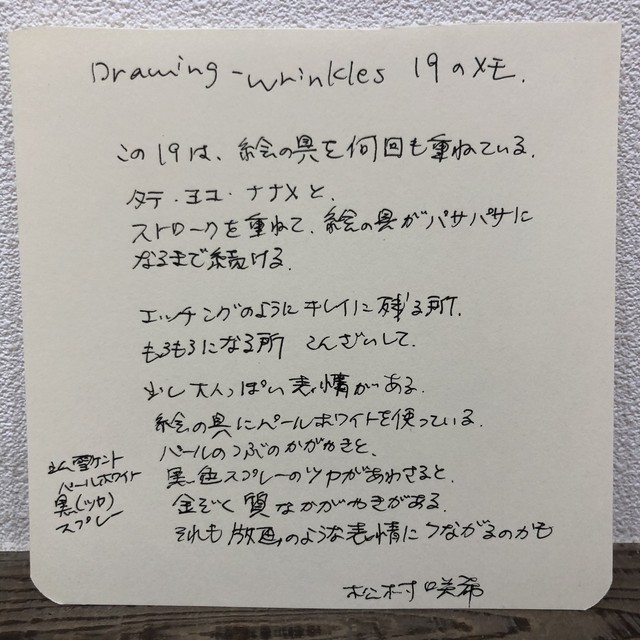 Drawing-wrinkles 19のメモ.
この19は、絵の具を何回も重ねている.
タテ・ヨコ・ナナメと.
ストロークを重ねて、絵の具がパサパサに
なるまで続ける.
エッチングのようにキレイに残る所.
もろもろになる所 こんざいして.
少し大人っぽい表情がある.
絵の具にパールホワイトを使っている.
パールのつぶのかがやきと、
黒色スプレーのツヤがあわさると、
金ぞく質なかがやきがある.
それも版画のような表情につながるのかも
雪ケント
パールホワイト
黒(ツヤ)
スプレー
松村咲希